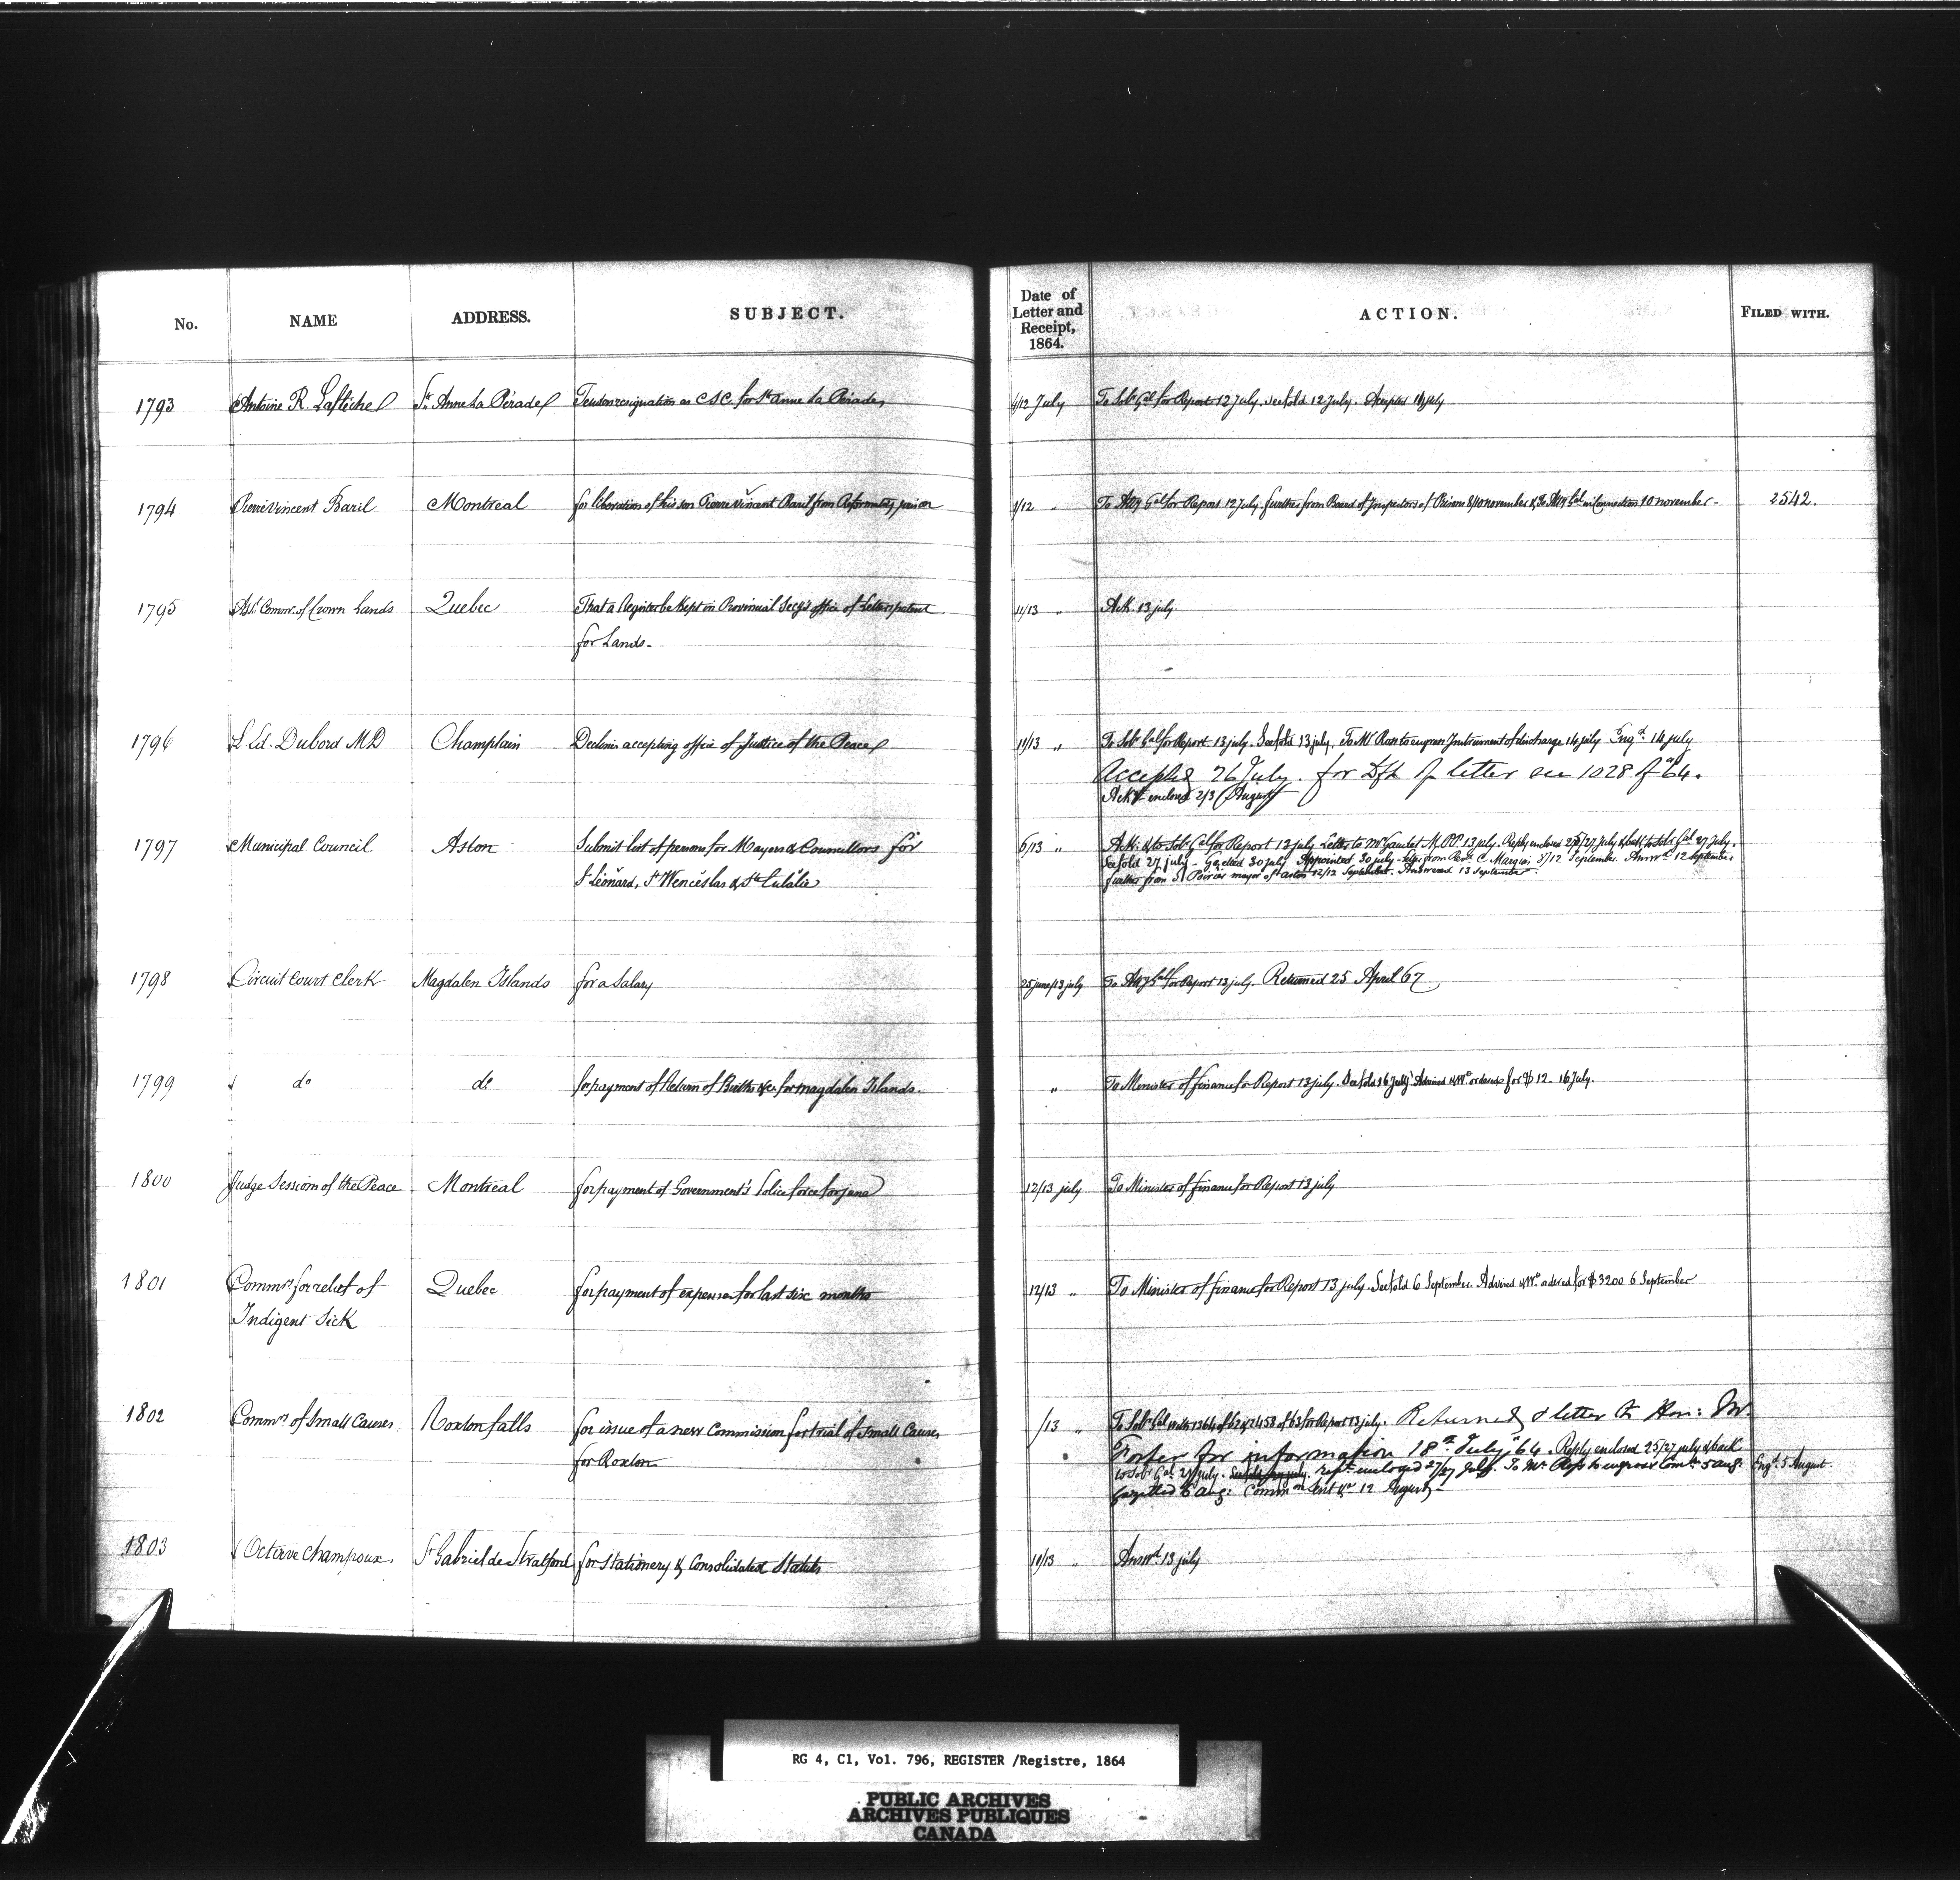 No. NAME ADDRESS. SUBJECT. Date of Letter and Receipt, 1864. ACTION. FILED WITH.
1793 Antoine R. Laflèche St Anne La Pérade Tenders resignation as CSC. for St Anne La Pérade 4/12 July To Solr Gal for Report 12 July. See fold 12 July. Accepted 14 July
1794 Pierre Vincent Baril Montreal for liberation of his son Pierre Vincent Baril from Reformatory prison 1/12 " To Atty Gal for Report 12 July. further from Board of Inspectors of Prisons 8/10 november & To Atty Gal in Connection 10 november - 2542.
1795 Asst Commr. of Crown Lands Quebec That a Register be Kept in Provincial Secy's office of Letters patent 11/13 " Ack. 13 july.
for Lands-
1796 L. Ed. Dubord MD Champlain Declines accepting office of Justice of the Peace 11/13 " To Solr Gal for Report 13 july. See fold 13 july. To Mr Ross to engross Instrument of discharge 14 july Engd. 14 july
Accepted 26 July. for Dft of letter see 1028 of "64.
Ackt enclosed 2/3 August
1797 Municipal Council Aston Submit list of persons for Mayors & Councillors for 6/13 " Ack. & to Solr Gal for Report 13 july. Letter to Mr Gaudet M.PP. 13 july. Reply enclosed 25/27 july & back to Sol Gal 27 july.
See fold 27 july - Gazetted 30 july Appointed 30 july - from Revd. C. 5/12 September. Answd 12 September
St Léonard, St Wenceslas & Ste Eulalie further from Poirier mayor of Aston 12/12 September. Answered 13 September
1798 Circuit Court Clerk Magdalen Islands for a Salary 25 june/13 july To Atty Gal for Report 13 july. Returned 25 April 67
1799 do do for payment of Return of Births &c for Magdalen Islands. " To Minister of finance for Report 13 july. See fold 16 July Advised & Wt ordered for $12 - 16 July.
1800 Judge Sessions of the Peace Montreal for payment of Government's Police force for june 12/13 july To Minister of finance for Report 13 july
1801 Commrs for relief of Quebec for payment of expenses for last six months 12/13 " To Minister of finance for Report 13 july. See fold 6 September. Advised & Wt ordered for $3200 6 September
Indigent Sick
1802 Commrs of Small Causes Roxton falls for issue of a new Commission for trial of Small Causes /13 " To Solr Gal with 1364 of 62 & 2458 of 63 for Report 13 july. Returned & letter to Hon: Mr.
for Roxton Foster for information 18th July "64. Reply enclosed 25/27 july & back
to Solr Gal 27 july. Rept. enclosed 27/27 July. To Mr. Ross to engross Comn. 5 aug. Engd. 5 August.
Gazetted 6 aug: Commn sent &c 12 August -
1803 Octave Champoux. St Gabriel de Stratford for Stationery & Consolidated Statutes 10/13 " Answd. 13 july
RG 4, C1, Vol. 796, REGISTER /Registre, 1864
PUBLIC ARCHIVES
ARCHIVES PUBLIQUES
CANADA